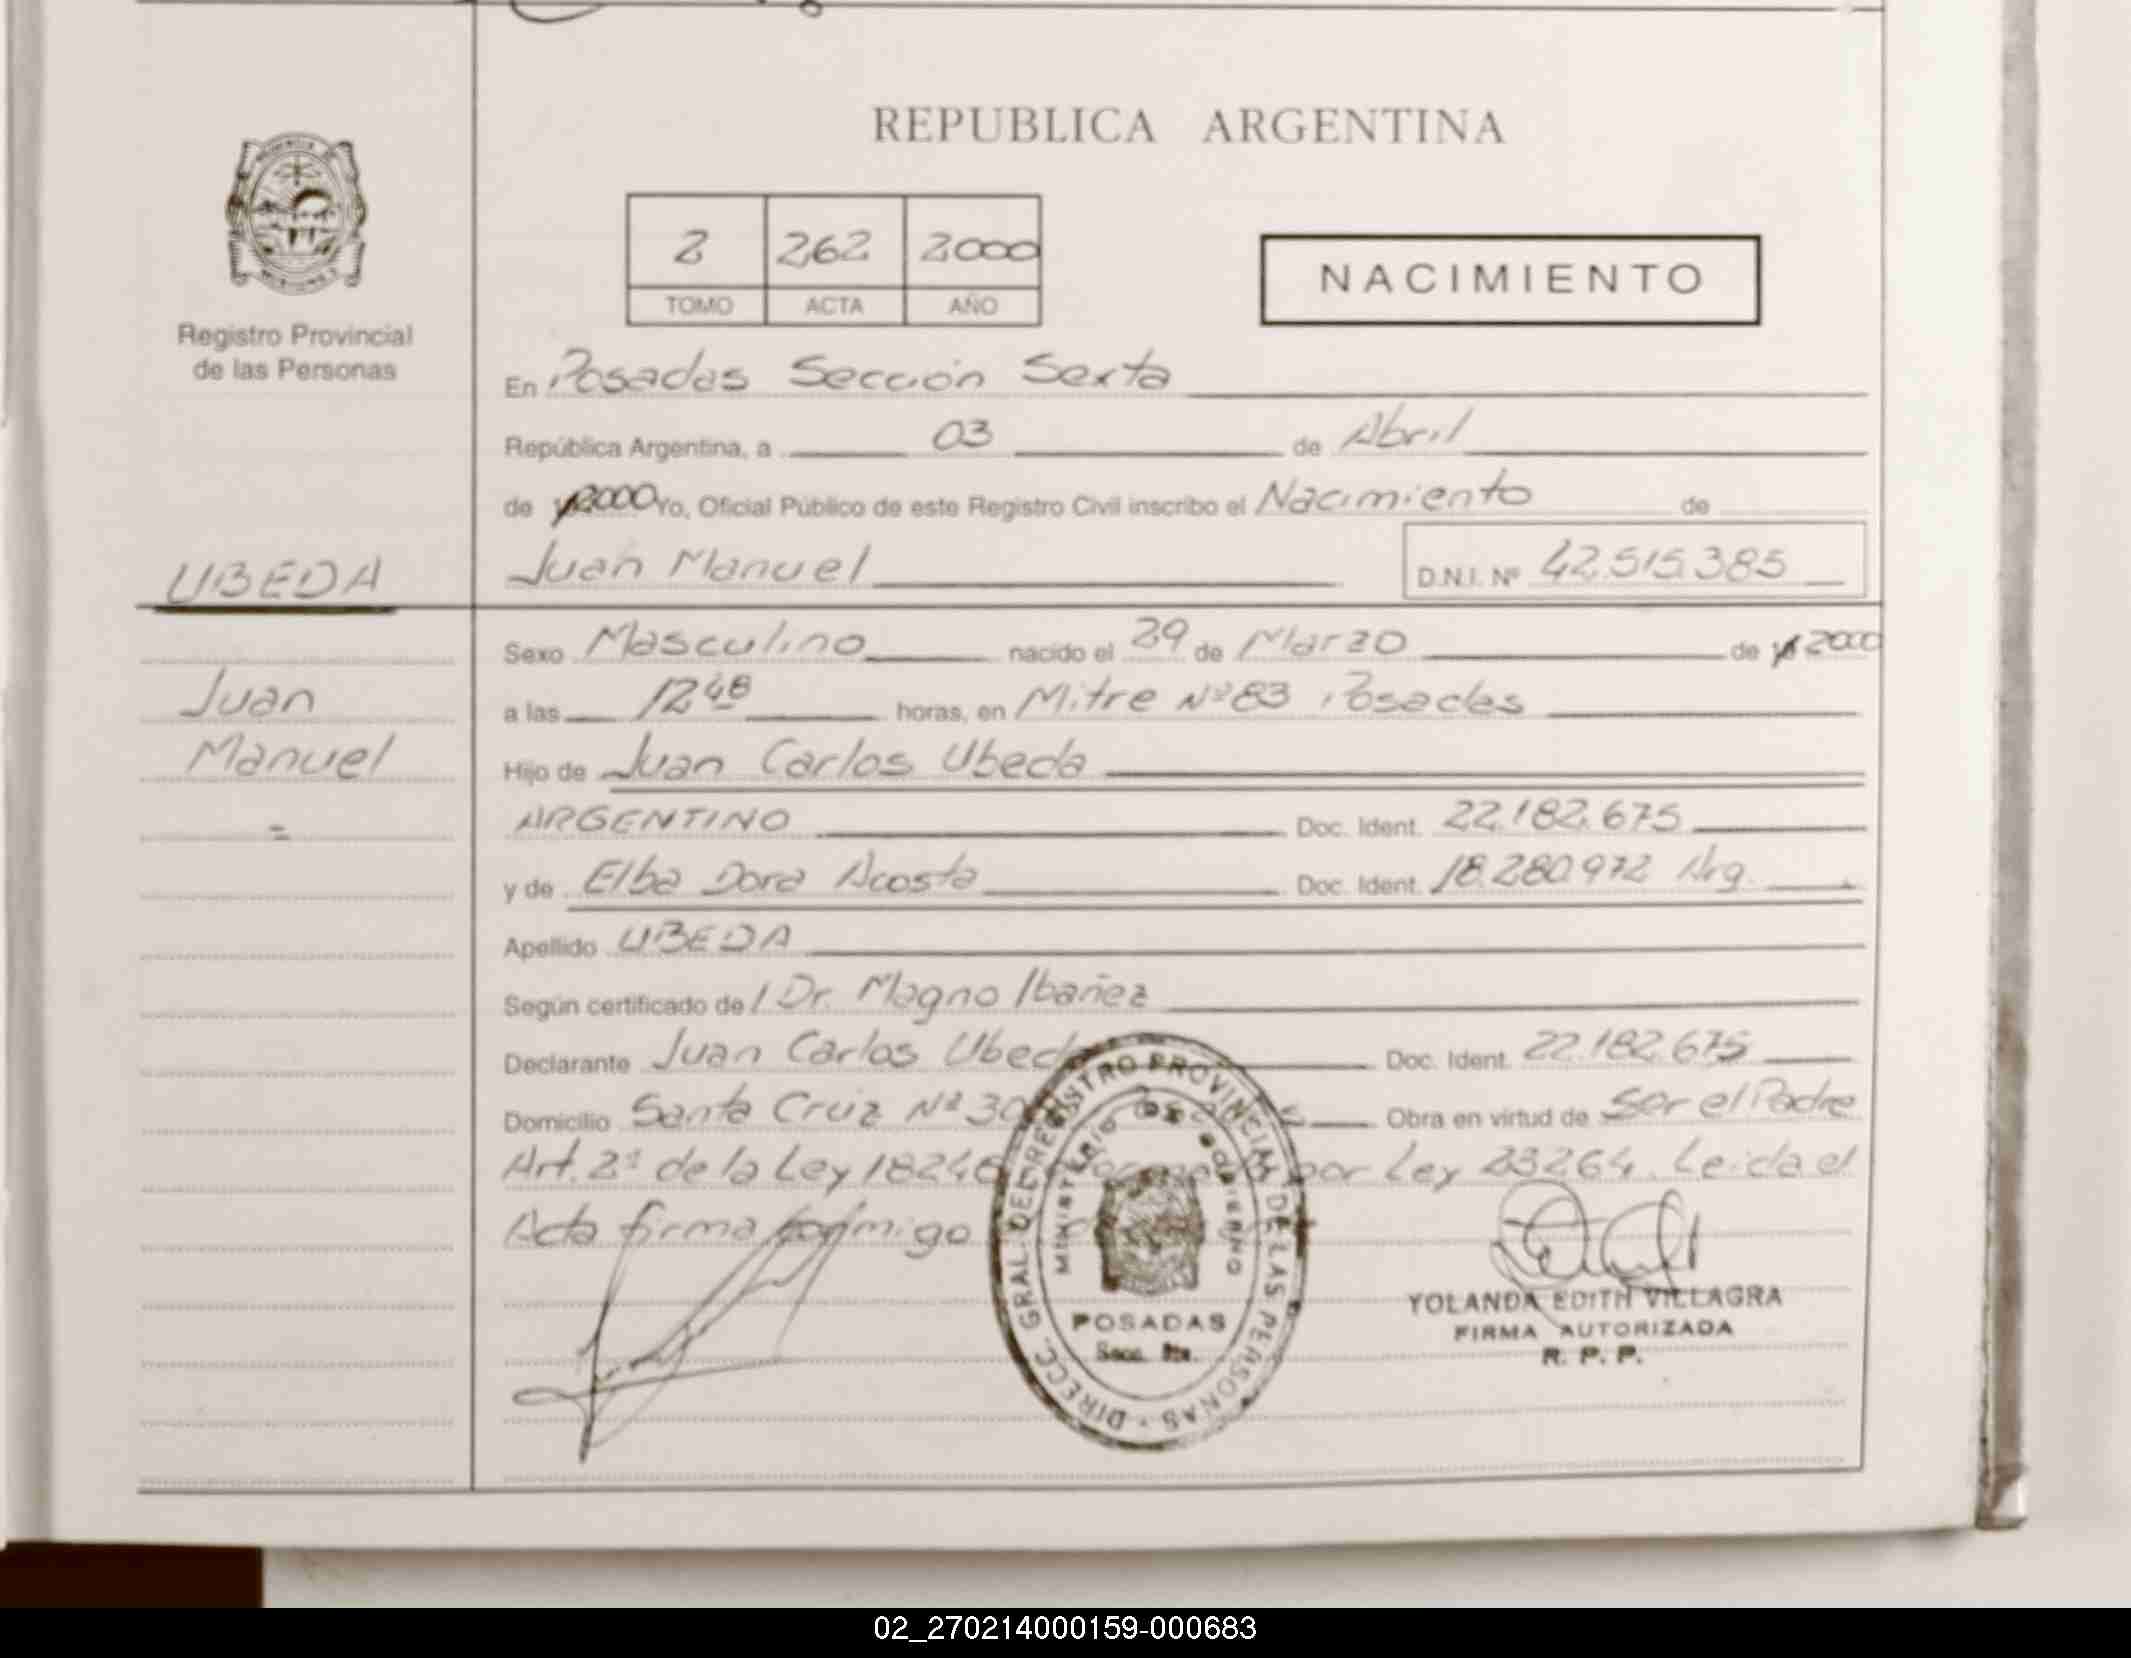 REPUBLICA ARGENTINA
2 262 2000
TOMO ACTA AÑO
NACIMIENTO
Registro Provincial
de las Personas
En Posadas Sección Sexta
República Argentina, a 03 de Abril
de 2000 Yo, Oficial Público de este Registro Civil inscribo el Nacimiento de
UBEDA
Juan Manuel D.N.I. Nº 42.515.385
Juan
Manuel
=
Sexo Masculino nacido el 29 de Marzo de 2000
a las 12 48 horas, en Mitre Nº 83 Posadas
Hijo de Juan Carlos Ubeda
ARGENTINO Doc. Ident. 22.182.675
y de Elba Dora Acosta Doc. Ident. 18.280.972 Arg.
Apellido UBEDA
Según certificado de l Dr. Magno Ibañez
Declarante Juan Carlos Ubeda Doc. Ident. 22.182.675
Domicilio Santa Cruz Nº Obra en virtud de Ser el Padre
Art. 2º de la Ley 18248 por Ley 23264. Leida el
Acta firma conmigo
DIRECC. GRAL. DEL REGISTRO PROVINCIAL DE LAS PERSONAS
MINISTERIO DE GOBIERNO
POSADAS
Secc. 6ta.
YOLANDA EDITH VILLAGRA
FIRMA AUTORIZADA
R. P. P.
02_270214000159-000683